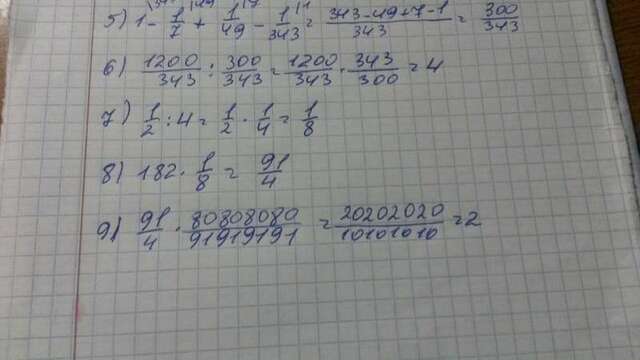 5) 1 - 1/7 + 1/49 - 1/343 = (343-49+7-1)/343 = 300/343
6) 1200/343 : 300/343 = 1200/343 · 343/300 = 4
7) 1/2 : 4 = 1/2 · 1/4 = 1/8
8) 182 · 1/8 = 91/4
9) 91/4 · 80808080/91919191 = 20202020/10101010 = 2